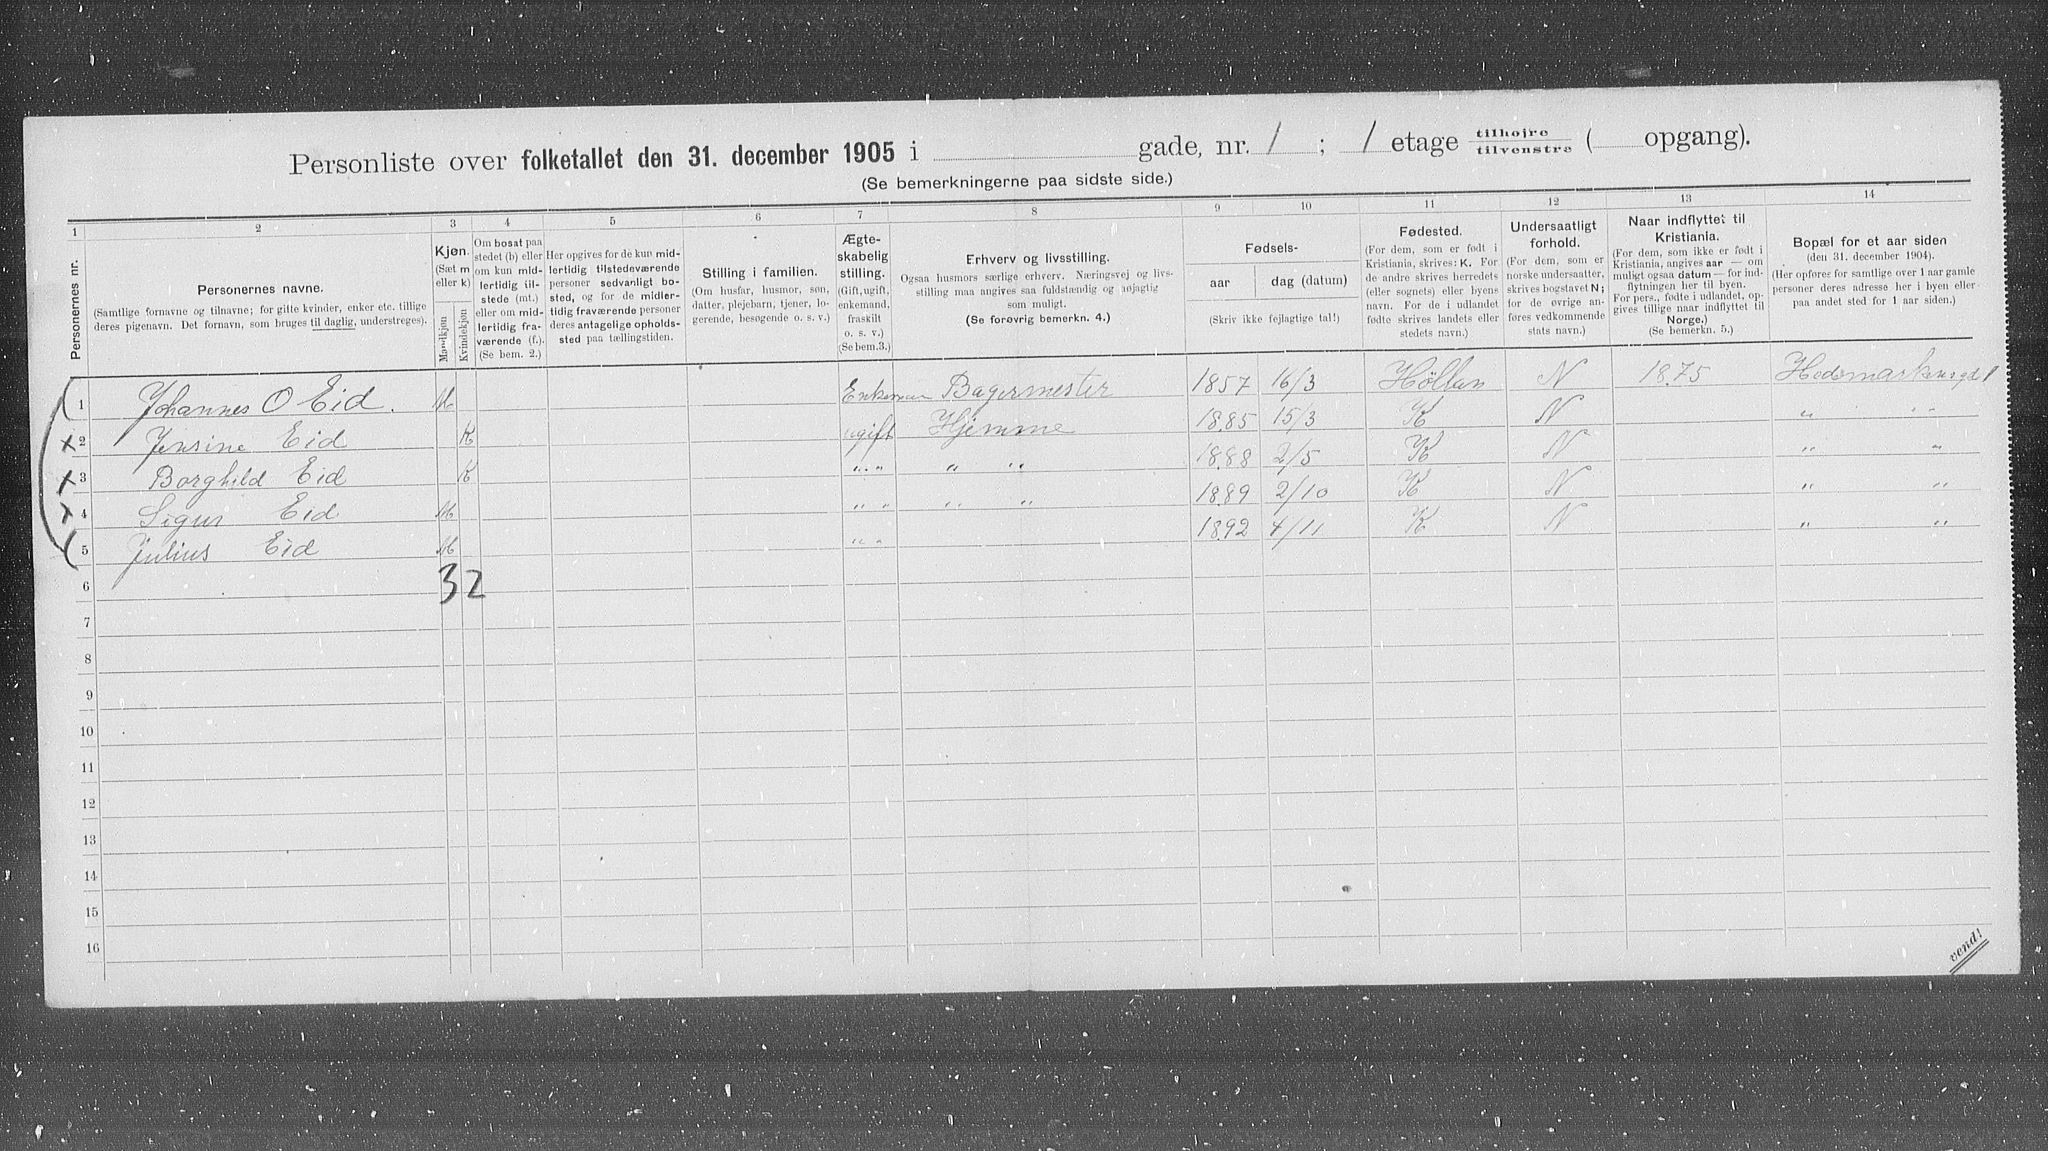 Personliste over folketallet den 31. december 1905 i gade, nr. 1 ; 1 etage tilhøjre tilvenstre ( opgang).
(Se bemerkningerne paa sidste side.)
1 2 3 4 5 6 7 8 9 10 11 12 13 14
Personernes nr.
Personernes navne.
(Samtlige fornavne og tilnavne; for gifte kvinder, enker etc. tillige
deres pigenavn. Det fornavn, som bruges til daglig, understreges).
Kjøn.
(Sæt m
eller k)
Mandkjøn
Kvindekjøn
Om bosat paa
stedet (b) eller
om kun mid-
lertidig til-
stede (mt.)
eller om mid-
lertidig fra-
værende (f.).
(Se bem. 2.)
Her opgives for de kun mid-
lertidig tilstedeværende
personer sedvanligt bo-
sted, og for de midler-
tidig fraværende personer
deres antagelige opholds-
sted paa tællingstiden.
Stilling i familien.
(Om husfar, husmor, søn,
datter, plejebarn, tjener, lo-
gerende, besøgende o. s. v.)
Ægte-
skabelig
stilling.
(Gift, ugift,
enkemand,
fraskilt
o. s. v.)
(Se bem.3.)
Erhverv og livsstilling.
Ogsaa husmors særlige erhverv. Næringsvej og livs-
stilling maa angives saa fuldstændig og nøjagtig
som muligt.
(Se forøvrig bemerkn. 4.)
Fødsels-
aar dag (datum)
(Skriv ikke fejlagtige tal!)
Fødested.
(For dem, som er født i
Kristiania, skrives: K. For
de andre skrives herredets
(eller sognets) eller byens
navn. For de i udlandet
fødte skrives landets eller
stedets navn.)
Undersaatligt
forhold.
(For dem, som er
norske undersaatter,
skrives bogstavet N;
for de øvrige an-
føres vedkommende
stats navn.)
Naar indflyttet til
Kristiania.
(For dem, som ikke er født i
Kristiania, angives aar — om
muligt ogsaa datum — for ind-
flytningen her til byen.
For pers., fødte i udlandet, op-
gives tillige naar indflyttet til
Norge.)
(Se bemerkn. 5.)
Bopæl for et aar siden
(den 31. december 1904).
(Her opføres for samtlige over 1 aar gamle
personer deres adresse her i byen eller
paa andet sted for 1 aar siden.)
1 Johannes O Eid. M Enkeman Bagermester 1857 16/3 Höllen N 1875 Hedemarkensgd 1
x 2 Jensine Eid K ugift Hjemme 1885 15/3 K N " " "
x 3 Borghild Eid K " " " " " 1888 2/5 K N " "
x 4 Sigur Eid M " " " " 1889 2/10 K N " "
5 Julius Eid M " " 1892 4/11 K N " "
6 3 2
7
8
9
10
11
12
13
14
15
16
vend!